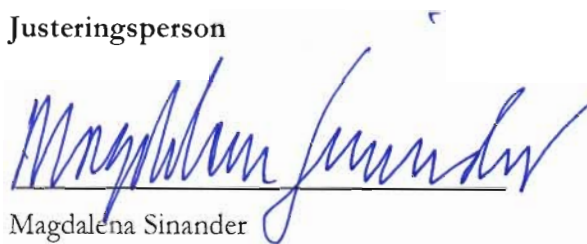 Justeringsperson
Magdalena Sinander
Magdalena Sinander